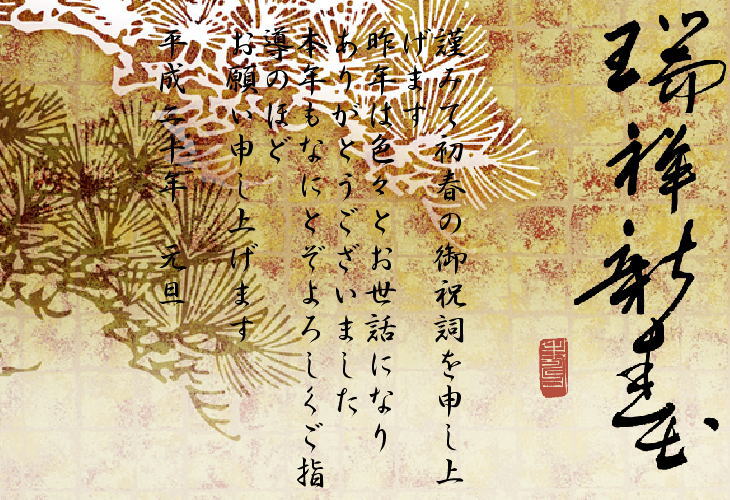 瑞祥新春
謹みて初春の御祝詞を申し上
げます
昨年は色々とお世話になり
ありがとうございました
本年もなにとぞよろしくご指
導のほど
お願い申し上げます
平成二十年 元旦